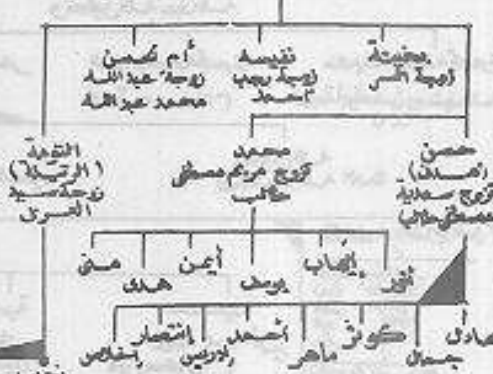 بخيتة
زوجة
نفيسه
زوجة رجب
أحمد
أم محسن
زوجة عبدالله
محمد عبدالله
حسن
تزوج سعدية
مصطفى طالب
محمد
تزوج مريم مصطفى
طالب
زوجة سيد
أنور
إيهاب
يوسف
أيمن
هدى
منى
عادل
جمال
كوثر
ماهر
أحمد
إنتصار
إخلاص